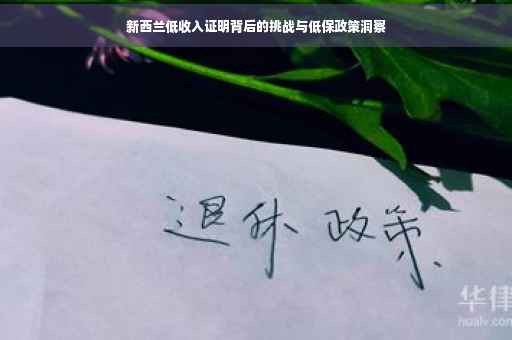 新西兰低收入证明背后的挑战与低保政策洞察
退休政策
华律
hualv.com